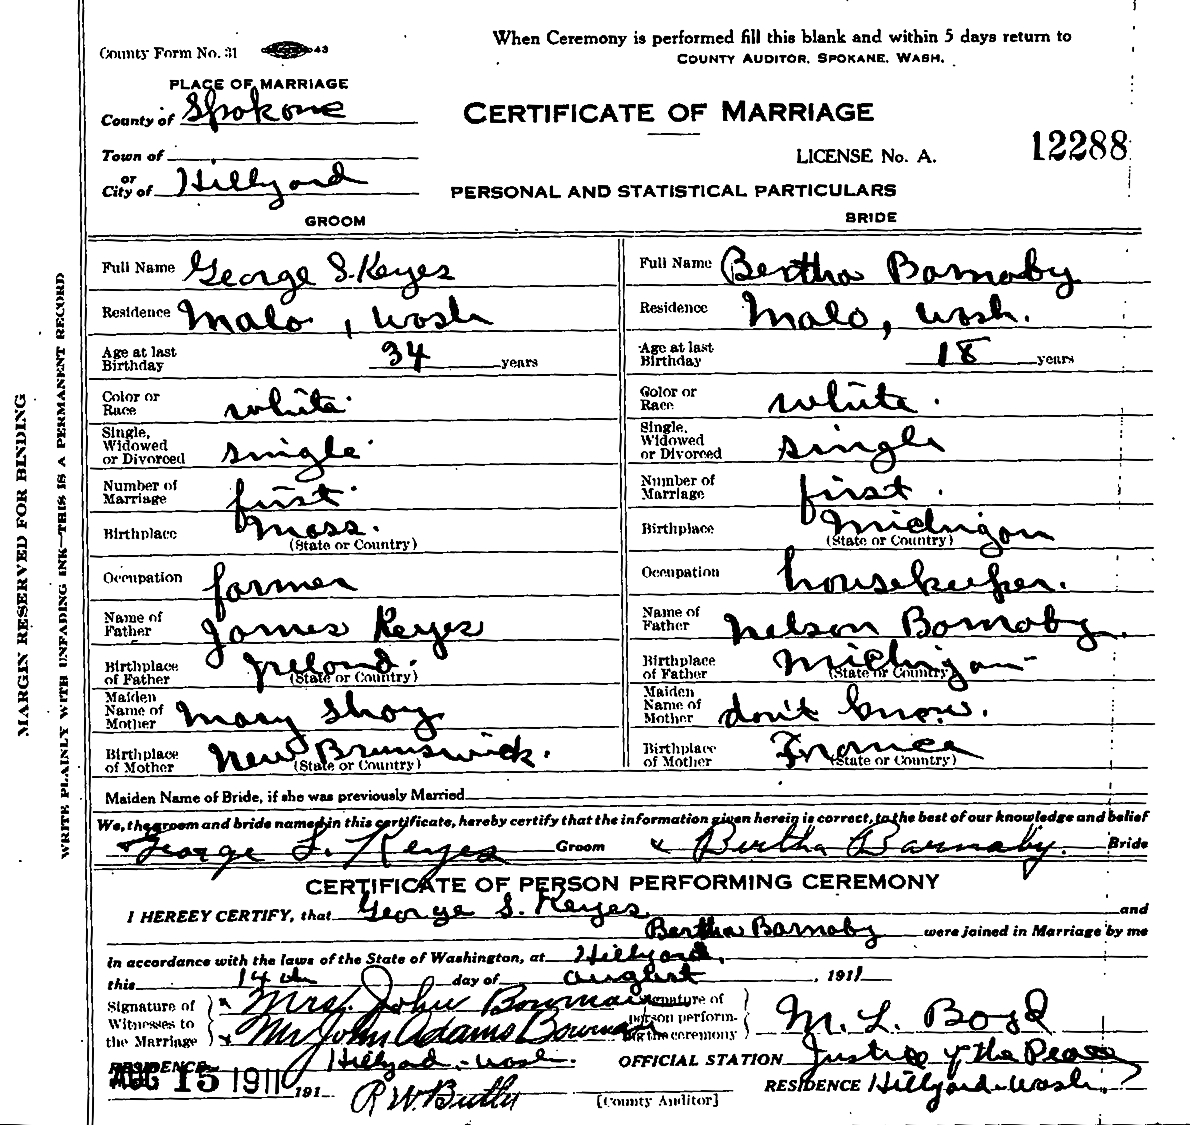 County Form No. 31 43
When Ceremony is performed fill this blank and within 5 days return to
COUNTY AUDITOR, SPOKANE, WASH.
PLACE OF MARRIAGE
County of Spokane
CERTIFICATE OF MARRIAGE
Town of
LICENSE No. A. 12288
or
City of Hillyard
PERSONAL AND STATISTICAL PARTICULARS
GROOM
BRIDE
MARGIN RESERVED FOR BINDING
WRITE PLAINLY WITH UNFADING INK—THIS IS A PERMANENT RECORD
Full Name George S. Keyes
Full Name Bertha Barnaby
Residence Malo, Wash
Residence Malo, Wash.
Age at last
Birthday 34 years
Age at last
Birthday 18 years
Color or
Race white
Color or
Race white.
Single,
Widowed
or Divorced single
Single,
Widowed
or Divorced single
Number of
Marriage first
Number of
Marriage first.
Birthplace Mass.
(State or Country)
Birthplace Michigan
(State or Country)
Occupation farmer
Occupation housekeeper.
Name of
Father James Keyes
Name of
Father Nelson Barnaby.
Birthplace
of Father Ireland.
(State or Country)
Birthplace
of Father Michigan
(State or Country)
Maiden
Name of
Mother Mary Shay
Maiden
Name of
Mother don't know.
Birthplace
of Mother New Brunswick.
(State or Country)
Birthplace
of Mother France
(State or Country)
Maiden Name of Bride, if she was previously Married
We, the groom and bride named in this certificate, hereby certify that the information given herein is correct, to the best of our knowledge and belief
George S. Keyes Groom x Bertha Barnaby. Bride
CERTIFICATE OF PERSON PERFORMING CEREMONY
I HEREEY CERTIFY, that George S. Keyes and
Bertha Barnaby were joined in Marriage by me
in accordance with the laws of the State of Washington, at Hillyard,
this 14th day of August, 1911
Signature of
Witnesses to
the Marriage
x Mrs. John Bowman
x Mr John Adams Bowman
Signature of
person perform-
ing the ceremony
M. L. Boyd
RESIDENCE Hillyard - Wash.
OFFICIAL STATION Justice of the Peace
AUG 15 1911 191
R W. Butler
[County Auditor]
RESIDENCE Hillyard - Wash.